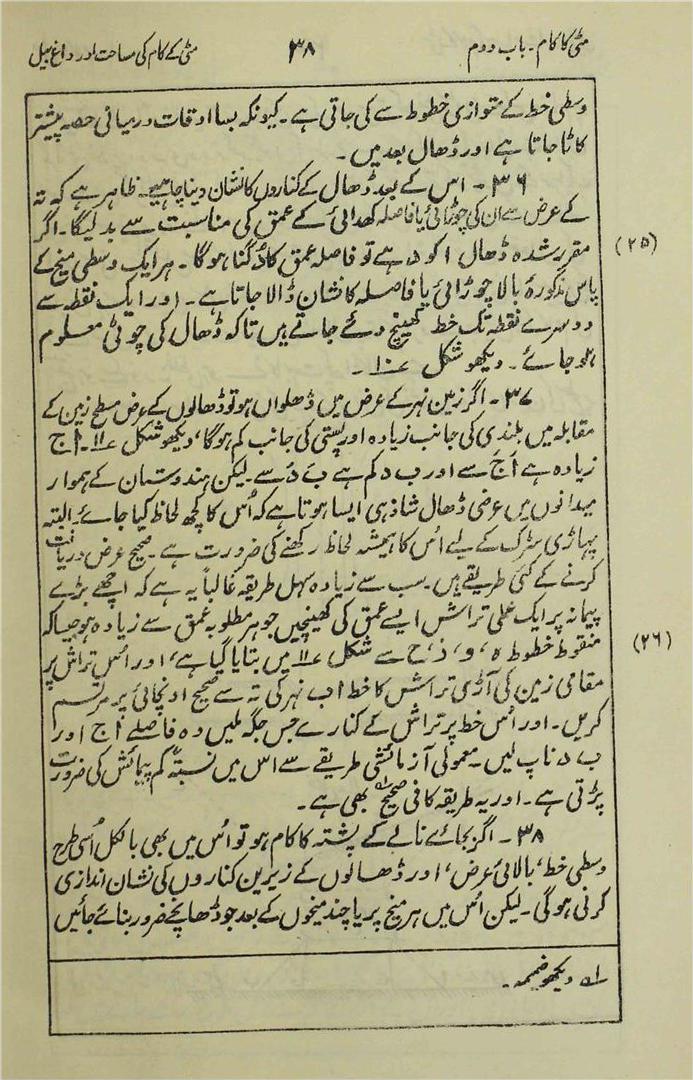 مٹی کا کام۔ باب دوم
۳۸
مٹی کے کام کی مساحت اور داغ بیل
وسطی خط کے متوازی خطوط سے کی جاتی ہے۔ کیونکہ بسا اوقات درمیانی حصہ پیشتر
کاٹا جاتا ہے اور ڈھال بعد میں۔
۳۶۔ اس کے بعد ڈھال کے کناروں کا نشان دینا چاہیے۔ ظاہر ہے کہ تہ
کے عرض سے ان کی چوڑائی یا فاصلہ کھدائی کے عمق کی مناسبت سے بدلیگا۔ اگر
مقرر شدہ ڈھال ۱ کو ۲ ہے تو فاصلہ عمق کا دُگنا ہوگا۔ ہر ایک وسطی میخ کے
(۲۵)
پاس مذکورۂ بالا چوڑائی یا فاصلہ کا نشان ڈالا جاتا ہے۔ اور ایک نقطہ سے
دوسرے نقطہ تک خط کھینچ دئے جاتے ہیں تاکہ ڈھال کی چوٹی معلوم
ہو جائے۔ دیکھو شکل ۱۰۔
۳۷۔ اگر زمین نہر کے عرض میں ڈھلواں ہو تو ڈھالوں کے عرض مسطح زمین کے
مقابلہ میں بلندی کی جانب زیادہ اور پستی کی جانب کم ہوگا، دیکھو شکل ۱۱۔ اَ ج
زیادہ ہے اَ جَ سے اور ب د کم ہے بَ دَ سے۔ لیکن ہندوستان کے ہموار
میدانوں میں عرضی ڈھال شاذ ہی ایسا ہوتا ہے کہ اُس کا کچھ لحاظ کیا جائے۔ البتہ
پہاڑی سڑک کے لیے اُس کا ہمیشہ لحاظ رکھنے کی ضرورت ہے۔ صحیح عرض دریافت
کرنے کے کئی طریقے ہیں۔ سب سے زیادہ سہل طریقہ غالباً یہ ہے کہ اچھے بڑے
پیمانہ پر ایک عملی تراش ایسے عمق کی کھینچیں جو ہر مطلوبہ عمق سے زیادہ ہو جیسا کہ
منقوط خطوط ہ، و، ذ، ح سے شکل ۱۱ میں بتایا گیا ہے، اور اس تراش پر
(۲۶)
مقامی زمین کی آڑی تراش کا خط اب نہر کی تہ سے صحیح اونچائی پر مرتسم
کریں۔ اور اُس خط پر تراش کے کنارے جس جگہ ملیں وہ فاصلے اَ ج اور
ب د ناپ لیں۔ معمولی آزمائشی طریقے سے اس میں نسبتہً کم پیمائش کی ضرورت
پڑتی ہے۔ اور یہ طریقہ کافی صحیح لہ بھی ہے۔
۳۸۔ اگر بجائے نالے کے پشتہ کا کام ہو تو اُس میں بھی بالکل اُسی طرح
وسطی خط، بالائی عرض، اور ڈھالوں کے زیرین کناروں کی نشان اندازی
کرنی ہوگی۔ لیکن اُس میں ہر میخ پر یا چند میخوں کے بعد جو ڈھانچے ضرور بنائے جائیں
لہ دیکھو ضمیمہ۔